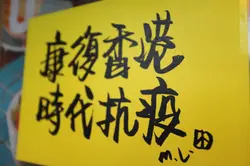 康復香港
時代抗疫
M.Li 田